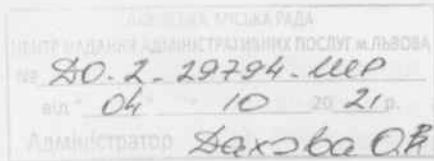 ЛЬВІВСЬКА МІСЬКА РАДА
ЦЕНТР НАДАННЯ АДМІНІСТРАТИВНИХ ПОСЛУГ м.ЛЬВОВА
№ ДО-2-29794-ШР
від "04" 10 2021 р.
Адміністратор Дахова О.В